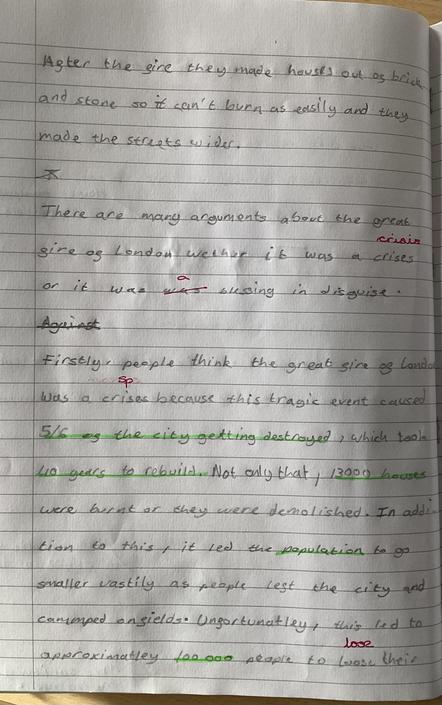 After the fire they made houses out of brick
and stone so it can't burn as easily and they
made the streets wider.
There are many arguments about the great
crisis
fire of London wether it was a crises
a
or it was was blesing in disguise.
Against
Firstly, people think the great fire of London
sp
was a crises because this tragic event caused
5/6 of the city getting destroyed, which took
40 years to rebuild. Not only that, 13000 houses
were burnt or they were demolished. In addi-
tion to this, it led the population to go
smaller vastily as people left the city and
cammped on fields. Unfortunatley, this led to
lose
approximatley 100,000 people to loose their